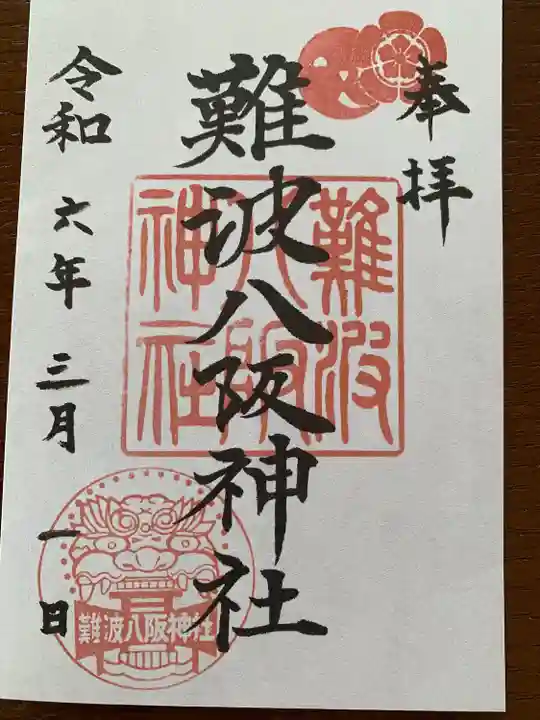 奉拝
難波八阪神社
難波八阪神社
令和六年三月一日
難波八阪神社